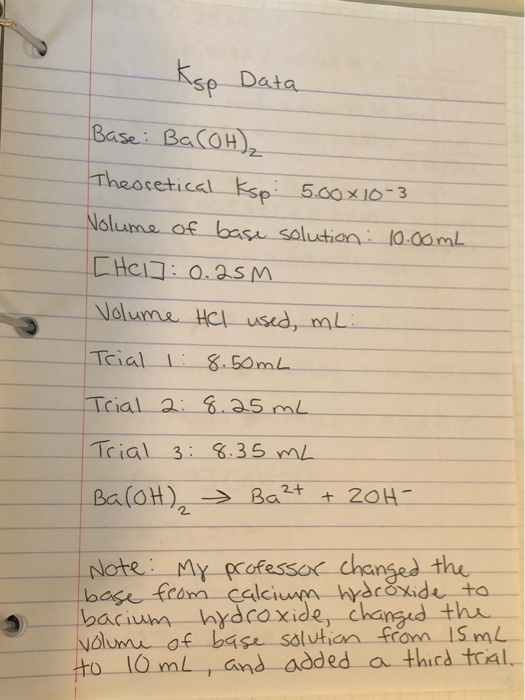 Ksp Data
Base: Ba(OH)₂
Theoretical Ksp: 5.00×10-3
Volume of base solution: 10.00mL
[HCl]: 0.25M
Volume HCl used, mL:
Trial 1: 8.50mL
Trial 2: 8.25 mL
Trial 3: 8.35 mL
Ba(OH)₂ → Ba²⁺ + 2OH⁻
Note: My professor changed the
base from calcium hydroxide to
barium hydroxide, changed the
volume of base solution from 15mL
to 10 mL, and added a third trial.